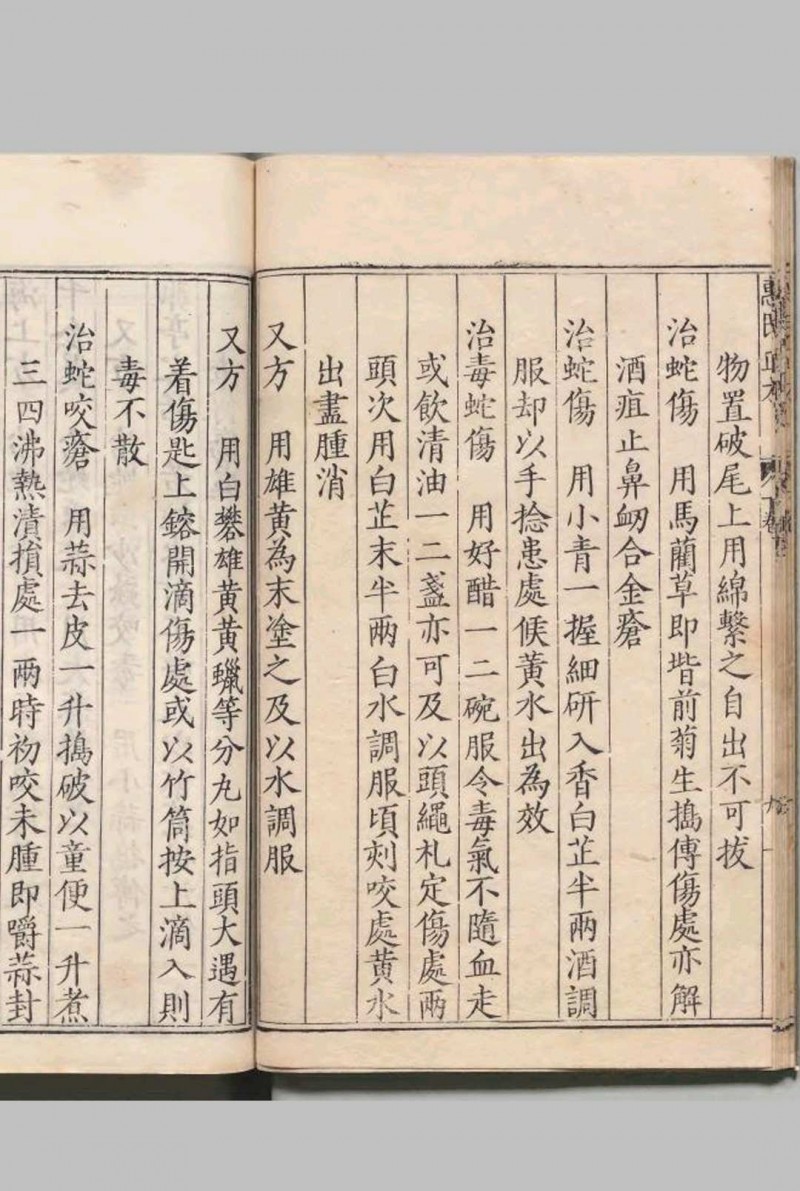 物置破尾上用綿繫之自出不可拔
治蛇傷　用馬蘭草即堦前菊生搗傅傷處亦解
酒疸止鼻衂合金瘡
治蛇傷　用小青一握細研入香白芷半兩酒調
服却以手捻患處候黃水出為效
治毒蛇傷　用好醋一二碗服令毒氣不隨血走
或飲清油一二盞亦可及以頭繩札定傷處兩
頭次用白芷末半兩白水調服頃刻咬處黄水
出盡腫消
又方　用雄黄為末塗之及以水調服
又方　用白礬雄黄黄蠟等分丸如指頭大遇有
着傷匙上鎔開滴傷處或以竹筒按上滴入則
毒不散
治蛇咬瘡　用蒜去皮一升搗破以童便一升煮
三四沸熱漬損處一兩時初咬未腫即嚼蒜封